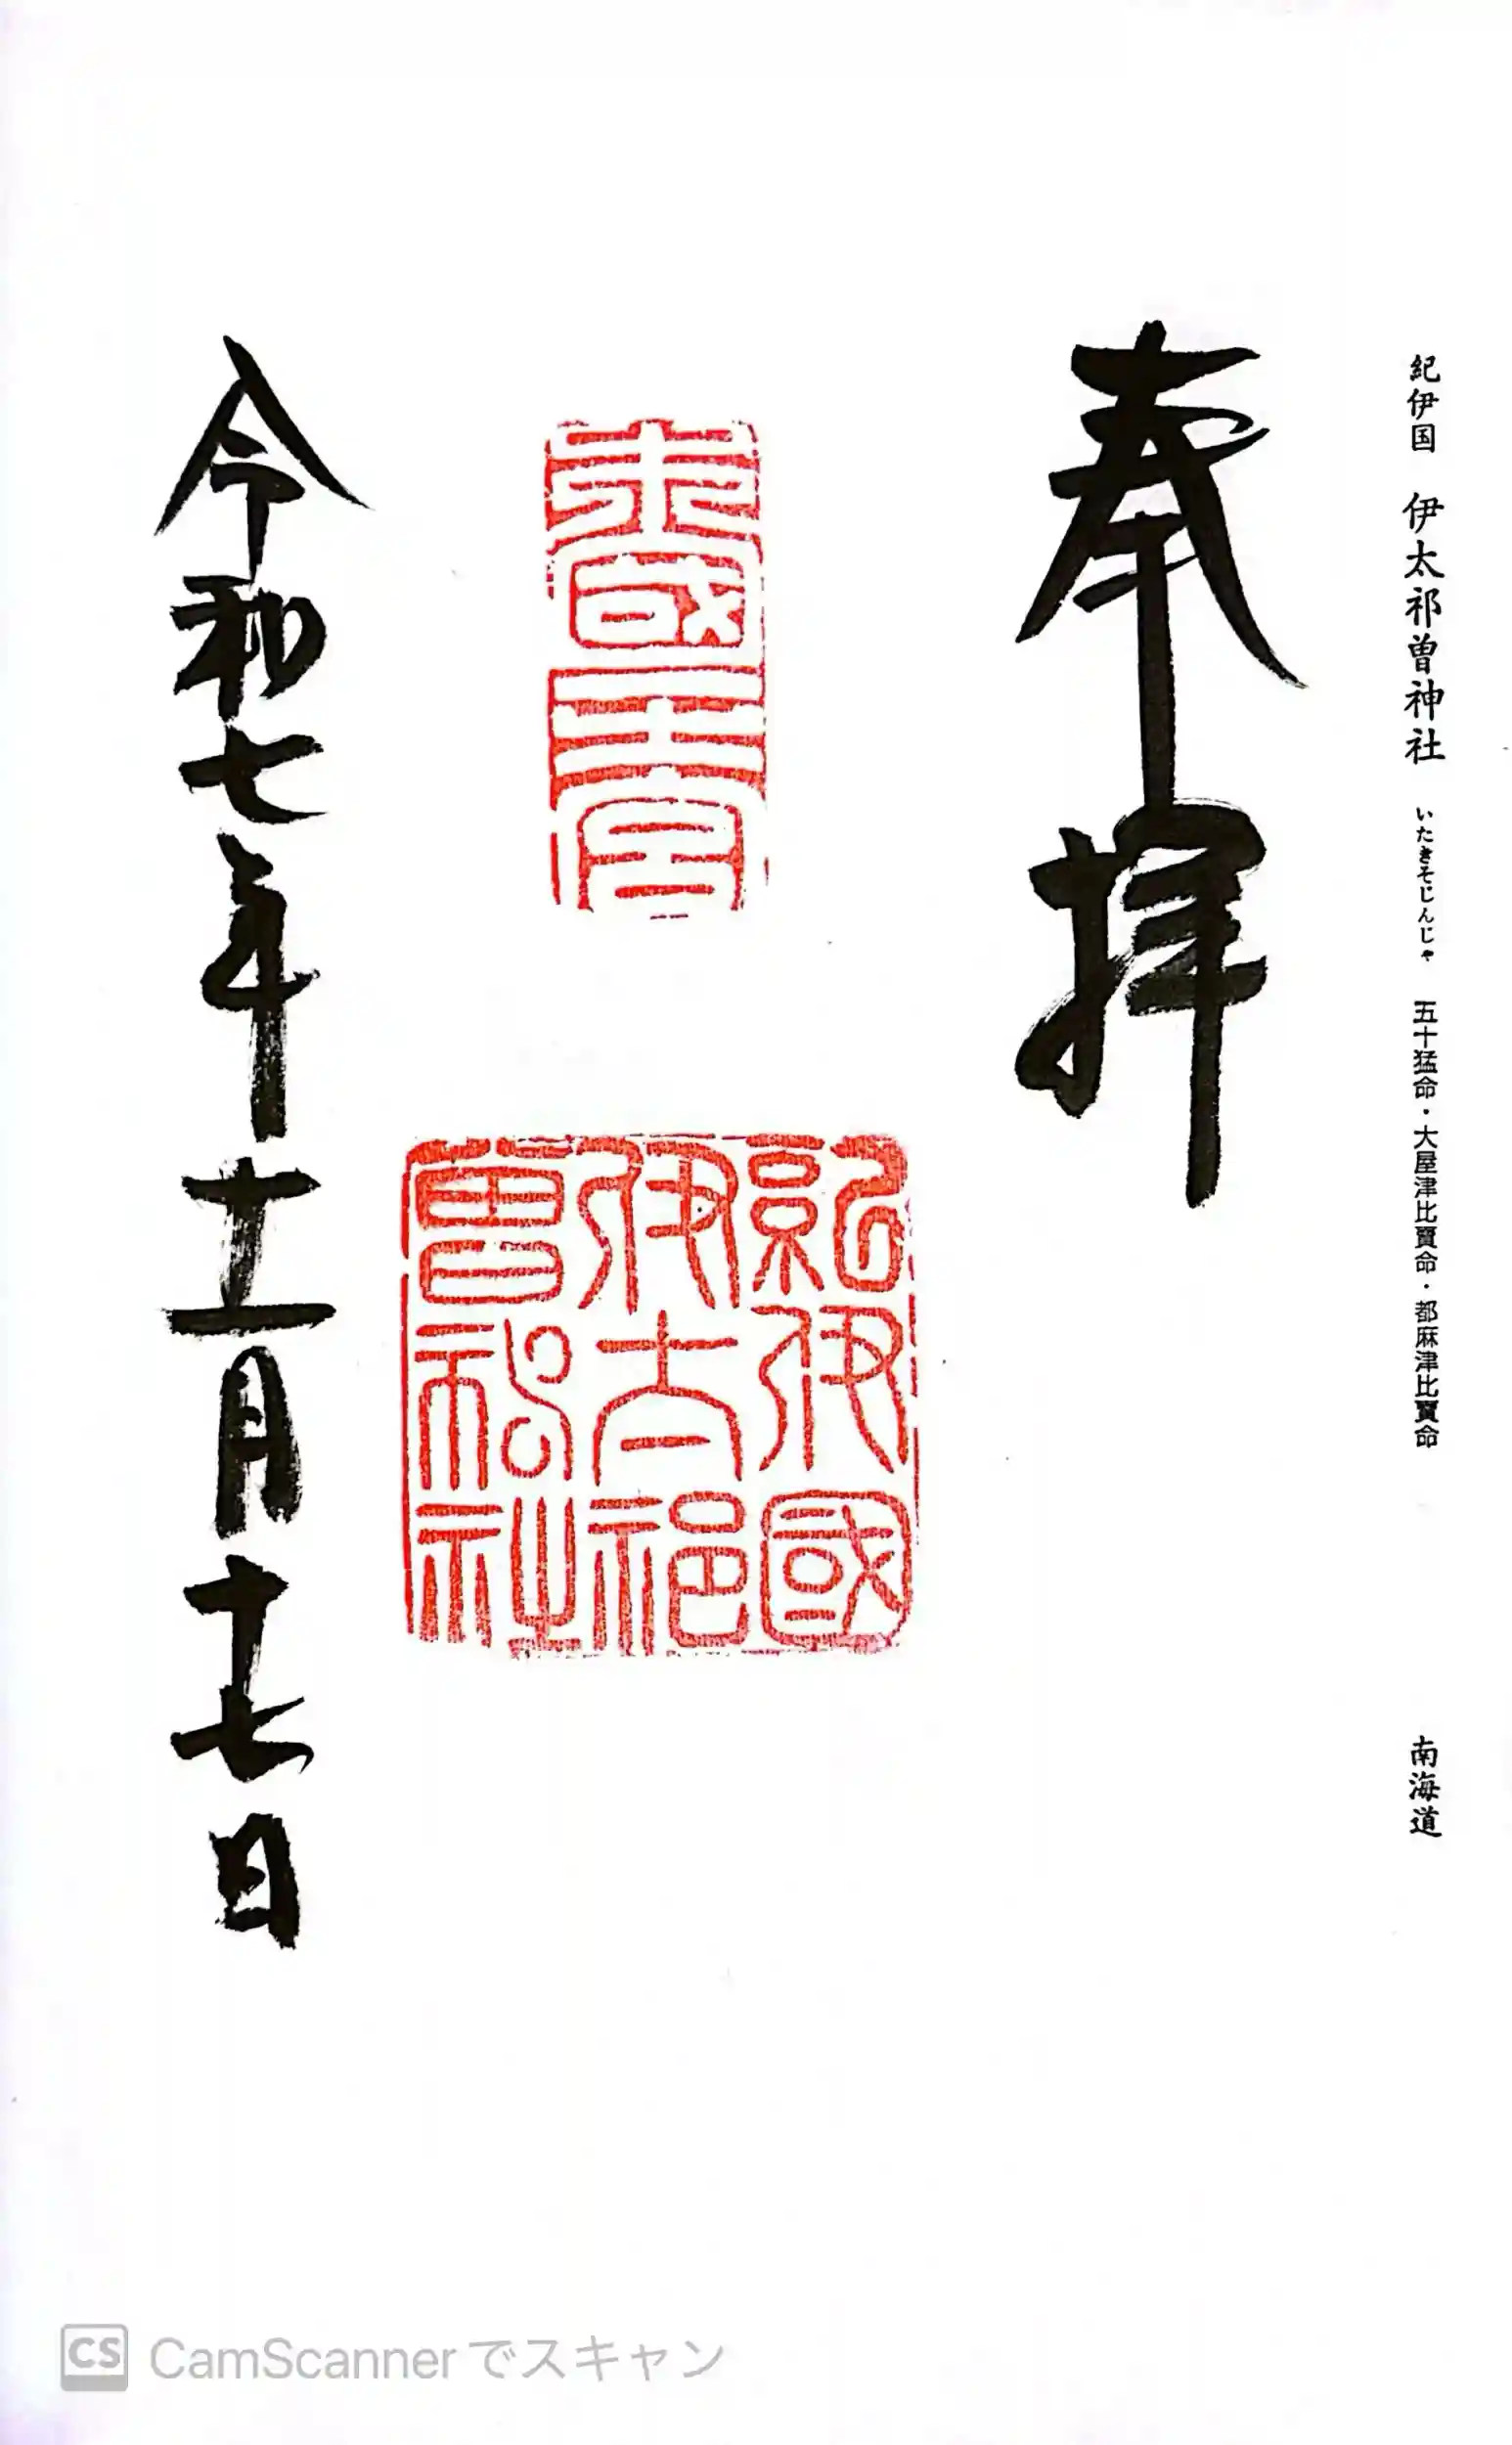 紀伊国 伊太祁曽神社 いたきそじんじゃ 五十猛命・大屋津比賣命・都麻津比賣命 南海道
奉拝
木國一宮
紀伊國
伊太祁
曽神社
令和七年十一月十七日
CS CamScannerでスキャン